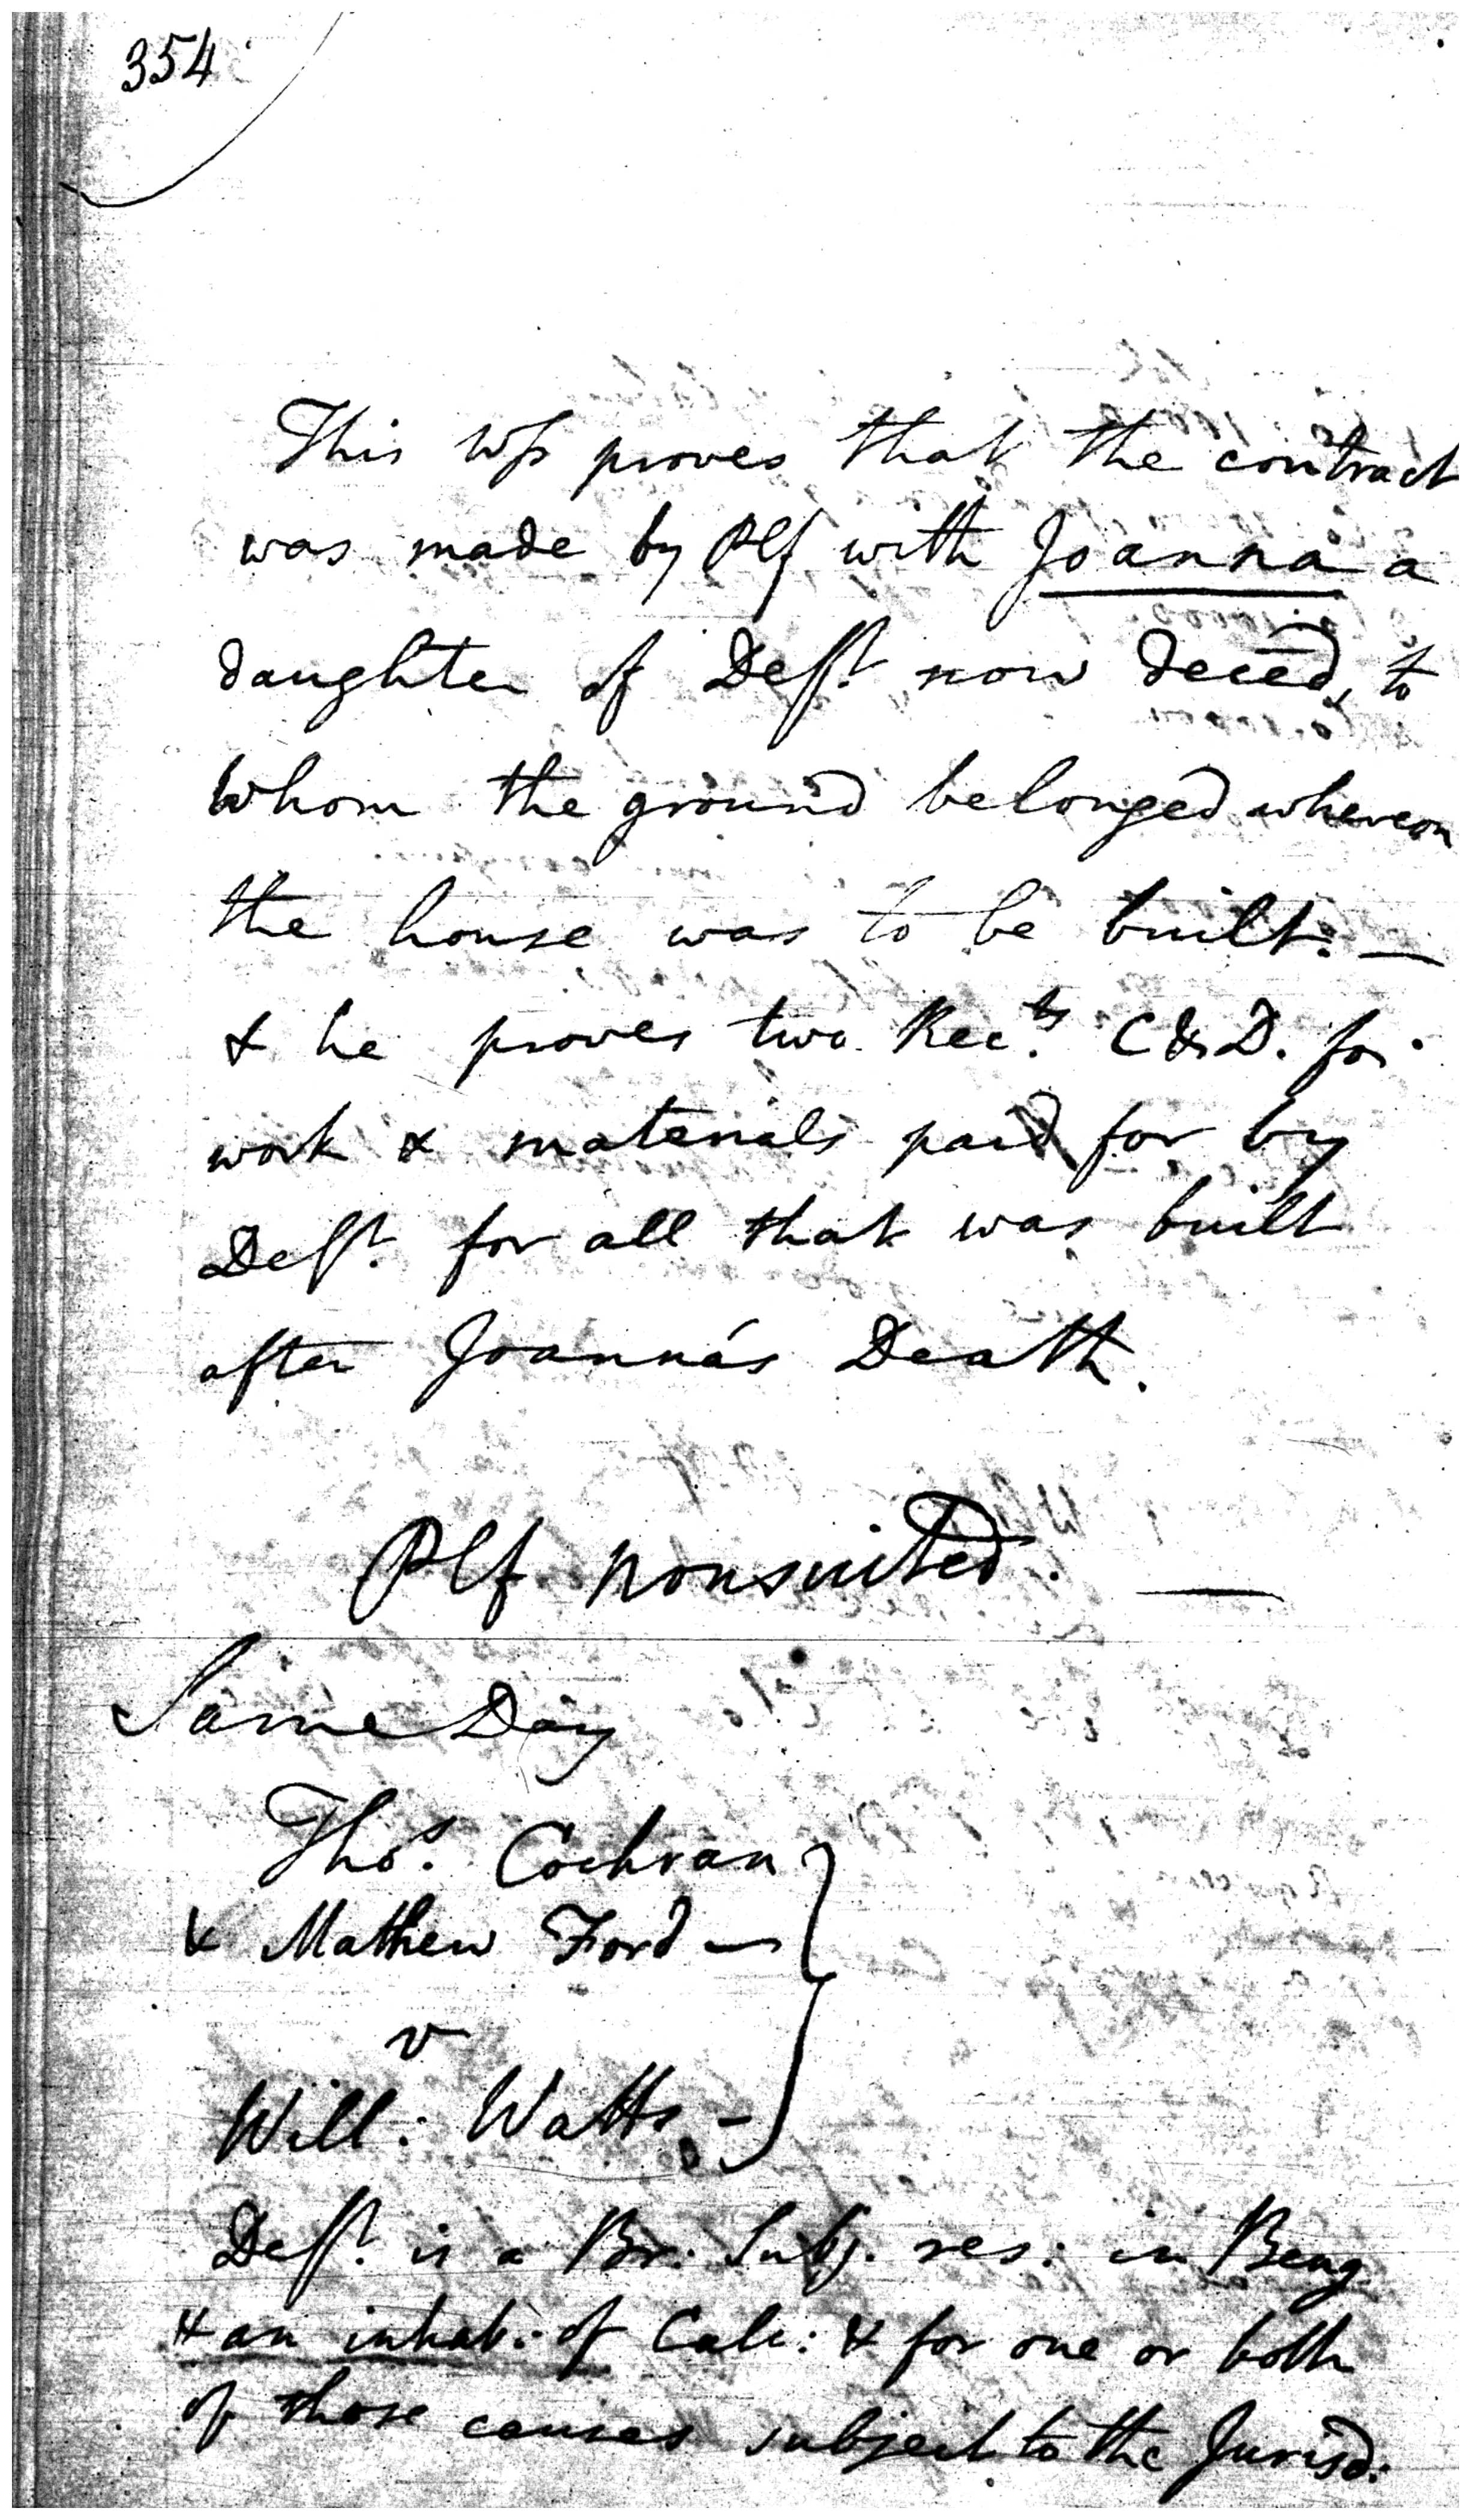 354
This Wſs proves that the contract
was made by Plf with Joanna a
daughter of Defᵗ. now deced, to
whom the ground belonged whereon
the house was to be built. —
& he proves two Recᵗˢ. C & D. for
work & materials paid for by
Defᵗ. for all that was built
after Joanna's Death.
Plf nonsuited. —
Same Day
Thoˢ. Cochran
& Mathew Ford —
v
Will: Watts —
Defᵗ. is a Br: Subj. res: in Beng
& an inhab: of Calc: & for one or both
of those causes subject to the Jurisd: